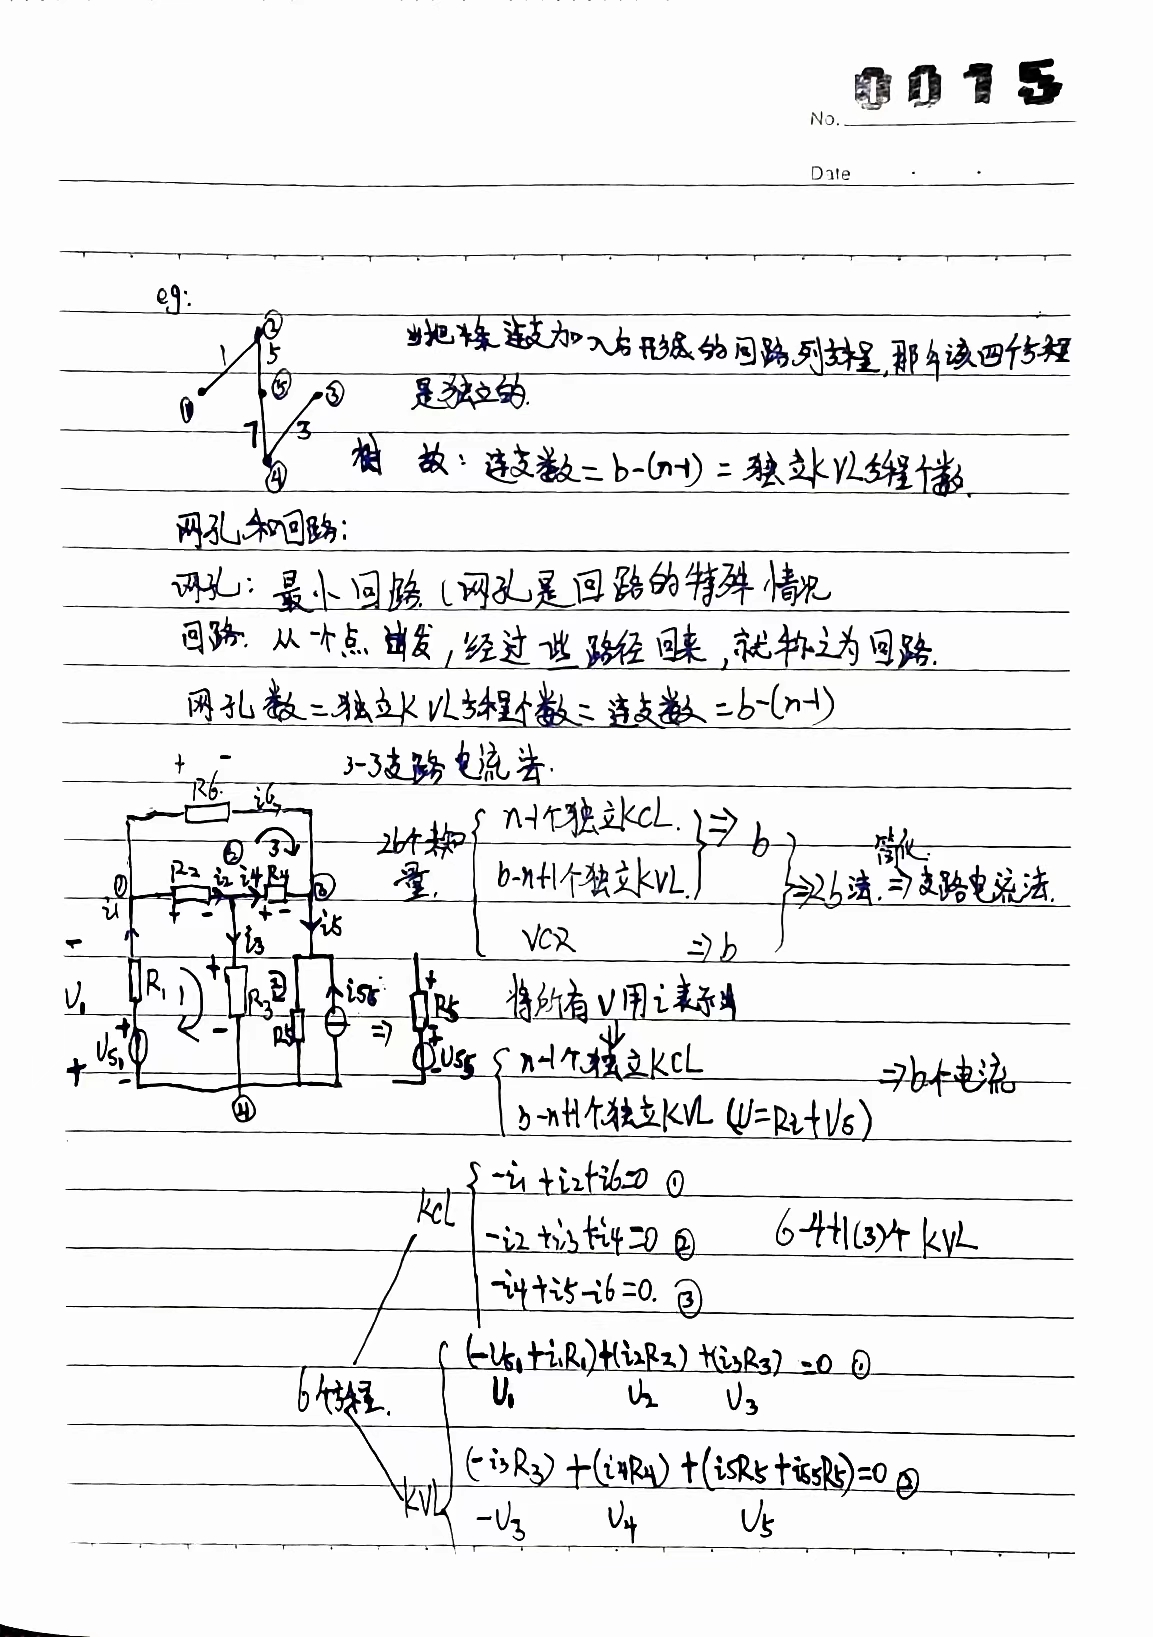 0015
No.
Date
eg:
② 1 5 ① ⑤ ③ 7 3 ④
当把
连支加入后形成的回路列方程,那么该四个方程
是独立的.
树 故: 连支数=b-(n-1)=独立KVL方程个数.
网孔和回路:
网孔: 最小回路(网孔是回路的特殊情况
回路: 从一个点出发,经过一些路径回来,就称之为回路.
网孔数=独立KVL方程个数=连支数=b-(n-1)
3-3支路电流法.
+ - R6 i6
① R2 i2 ② i4 R4 3 ③ i1 i5 i3
- U1 + R1 1 US1 R3 2 R5 iS5 ⇒ R5 US5 ④
2b个未知量.
n-1个独立KCL.
b-n+1个独立KVL.
⇒ b
VCR ⇒ b
⇒2b法. 简化 ⇒支路电流法.
将所有U用i表示出
n-1个独立KCL
b-n+1个独立KVL (U=Ri+US)
⇒b个电流
KCL
-i1+i2+i6=0 ①
-i2+i3+i4=0 ② 6-4+1(3)个KVL
-i4+i5-i6=0. ③
6个方程.
(-US1+i1R1)+(i2R2)+(i3R3)=0 ①
U1 U2 U3
KVL
(-i3R3)+(i4R4)+(i5R5+iS5R5)=0 ②
-U3 U4 U5